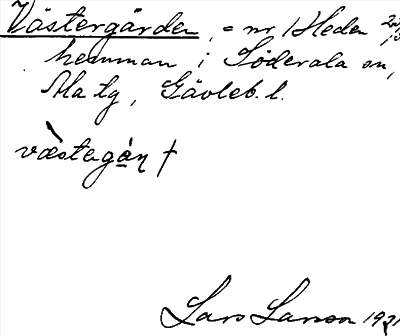 Västergården, = nr 1 Heden
hemman i Söderala sn,
Ala tg, Gävleb. l.
væstegàn †
Lars Larson 1921